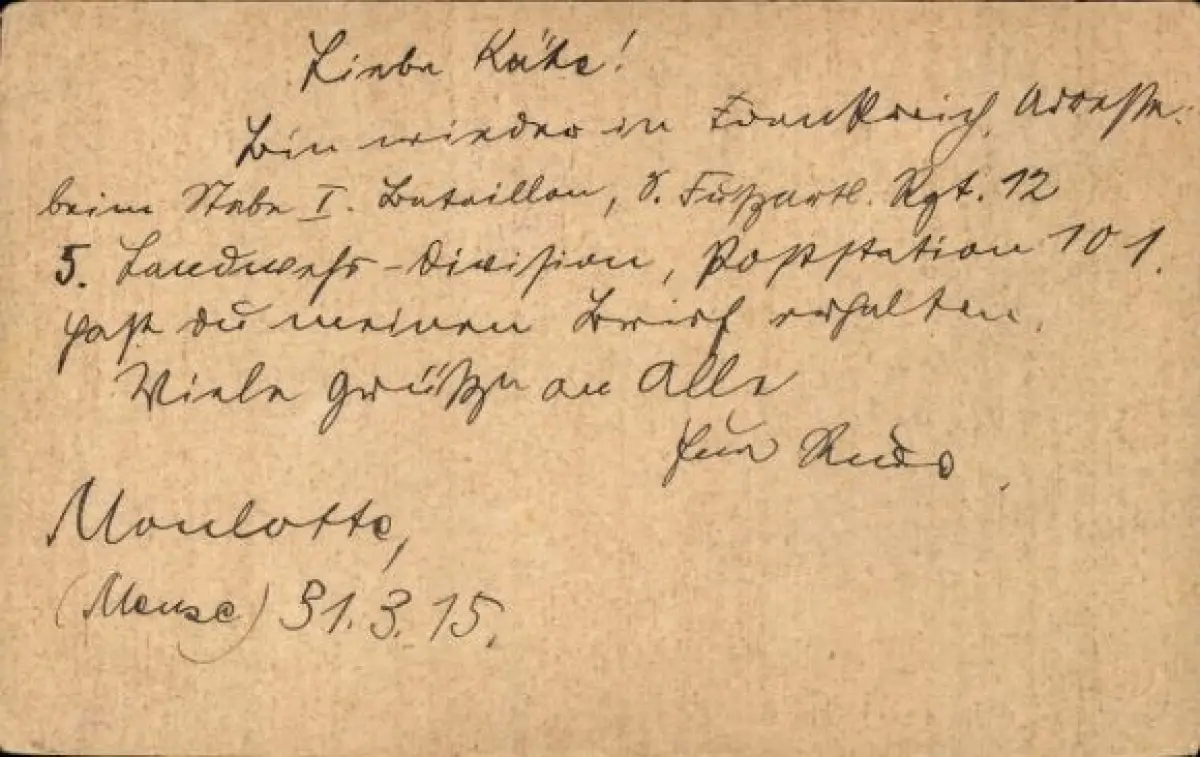 Liebe Käte!
Bin wieder in Frankreich. Adresse:
beim Stabe I. Bataillon, d. Fußartl. Rgt. 12
5. Landwehr-Division, Poststation 101.
Hast du meinen Brief erhalten.
Viele Grüße an Alle
Euer
Moulotte,
(Meuse) 31.3.15.